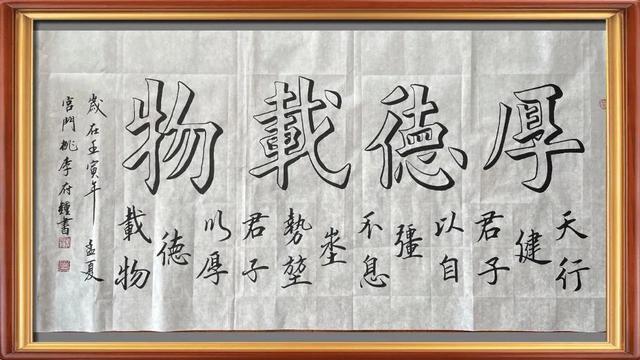 厚徳載物
天行
健
君子
以自
彊
不息
勢堃
君子
以厚
徳
載物
歲在壬寅年 孟夏
宮門桃李府鐘書